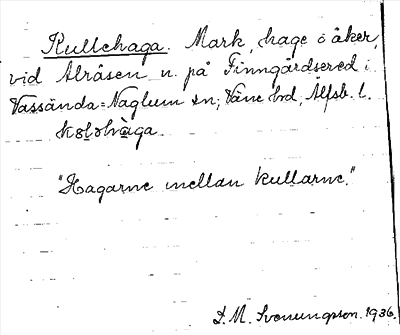 Kullehaga. Mark, hage o åker,
vid Alråsen n. på Finngårdsered i
Vassända=Naglum sn; Väne hd, Älfsb. l.
kɷləhàga.
"Hagarne mellan kullarne."
D. M. Svenungsson. 1936.